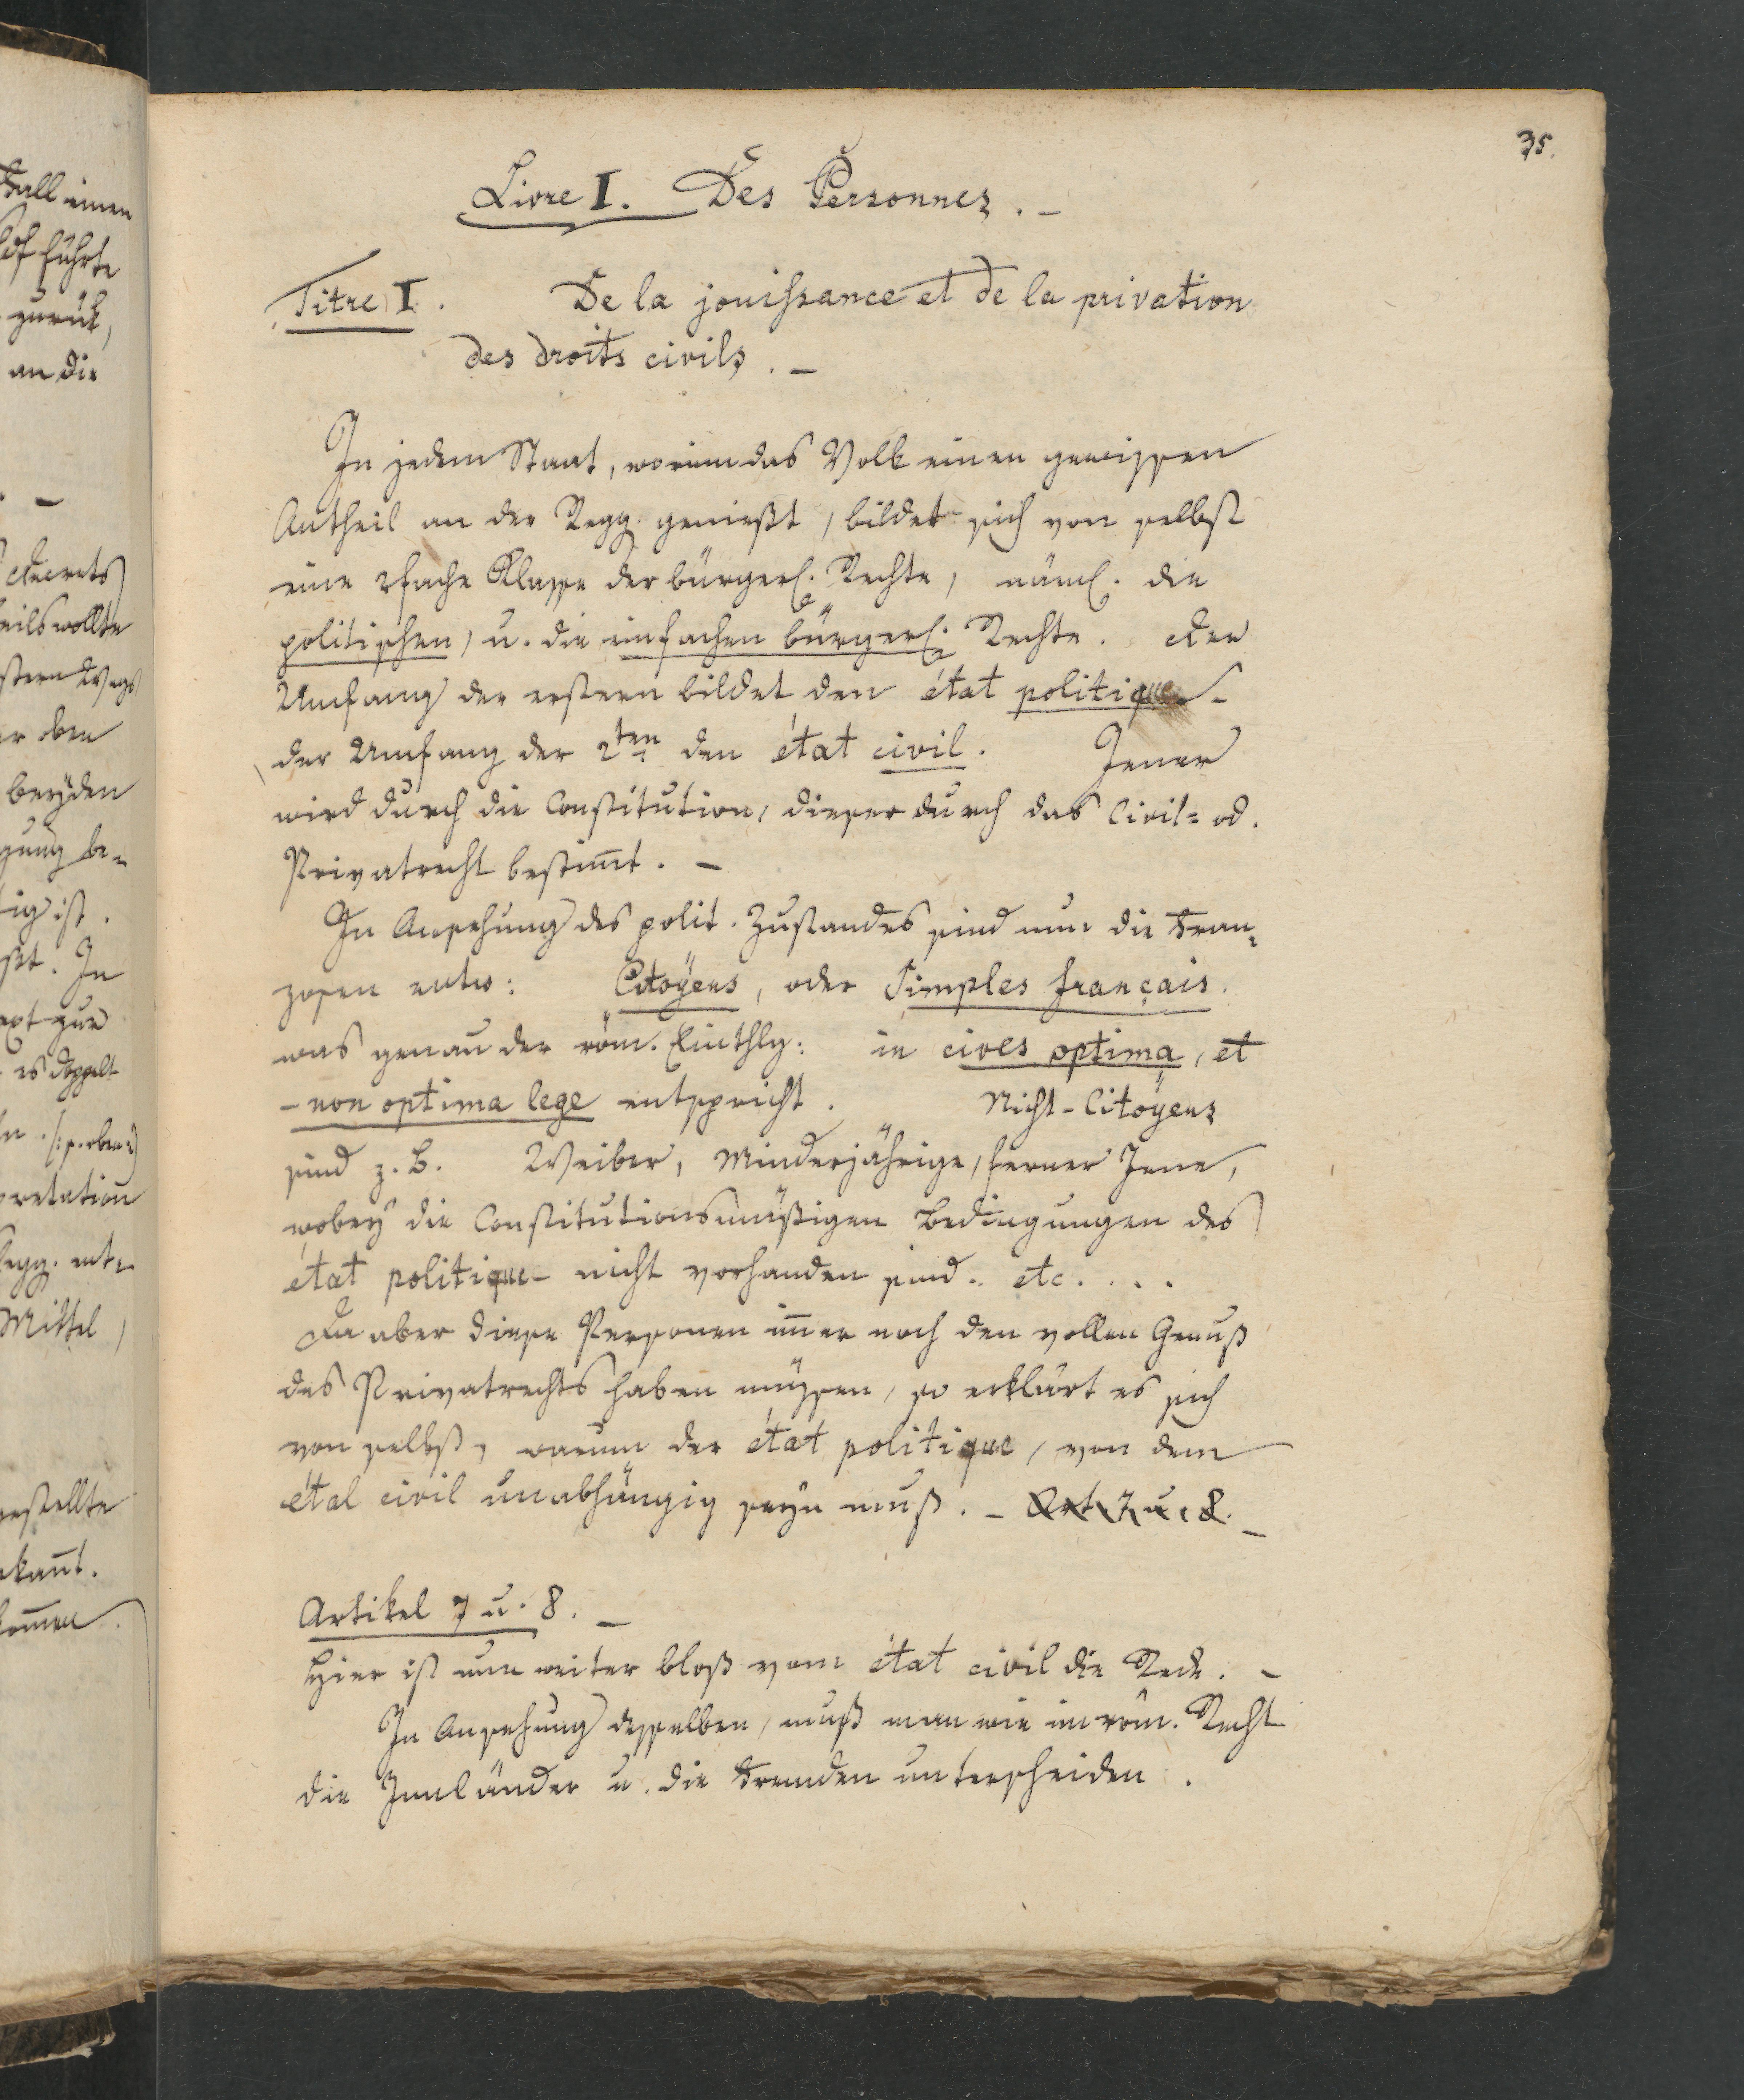 35.
Livre I. Des Personnes. –
Titre I. De la jouissance et de la privation
des droits civils. –
In jedem Staat, worinn das Volk einen gewissen
Antheil an der Regg. genießt, bildet sich von selbst
eine 2fache Klasse der bürgerl. Rechte, näml. die
politischen, u. die einfachen bürgerl. Rechte. Der
Umfang der erstern bildet den état politique –
der Umfang der 2ten den état civil. Jener
wird durch die Constitution, dieser durch das Civil= od.
Privatrecht bestim̄t. –
In Ansehung des polit. Zustandes sind nun die Fran=
zosen entw: Citoÿens, oder Simples français.
was genau der röm. Einthlg: in cives optima, et
– non optima lege entspricht. Nicht-Citoÿens
sind z. B. Weiber, Minderjährige, ferner Jene,
wobeÿ die Constitutionsmäßigen Bedingungen des
état politique – nicht vorhanden sind.. etc....
Da aber diese Personen im̄er noch den vollen Genuß
des Privatrechts haben müssen, so erklärt es sich
von selbst, warum der état politique, von dem
étal civil unabhängig seÿn muß. – Art. 7 u. 8. –
Artikel 7 u. 8. –
Hier ist nun weiter bloß vom état civil die Rede. –
In Ansehung desselben, muß man wie im röm. Recht
die Innländer u. die Fremden unterscheiden.
Fall einen
führte
zurük,
an die
Decrets
wollte
oben
beÿden
gung be=
ist.
In
zur
es doppelt
pretation
Mittel,